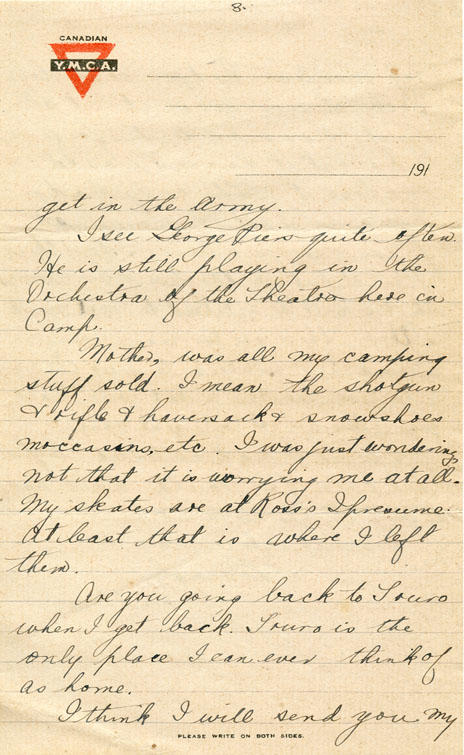 8.
CANADIAN
Y.M.C.A.
191
get in the Army.
I see George Piers quite often.
He is still playing in the
Orchestra of the Theatre here in
Camp.
Mother, was all my camping
stuff sold. I mean the shotgun
& rifle & haversack & snowshoes
moccasins, etc. I was just wondering,
not that it is worrying me at all.
My skates are at Ross's I presume.
At least that is where I left
them.
Are you going back to Truro
when I get back. Truro is the
only place I can ever think of
as home.
I think I will send you my
PLEASE WRITE ON BOTH SIDES.